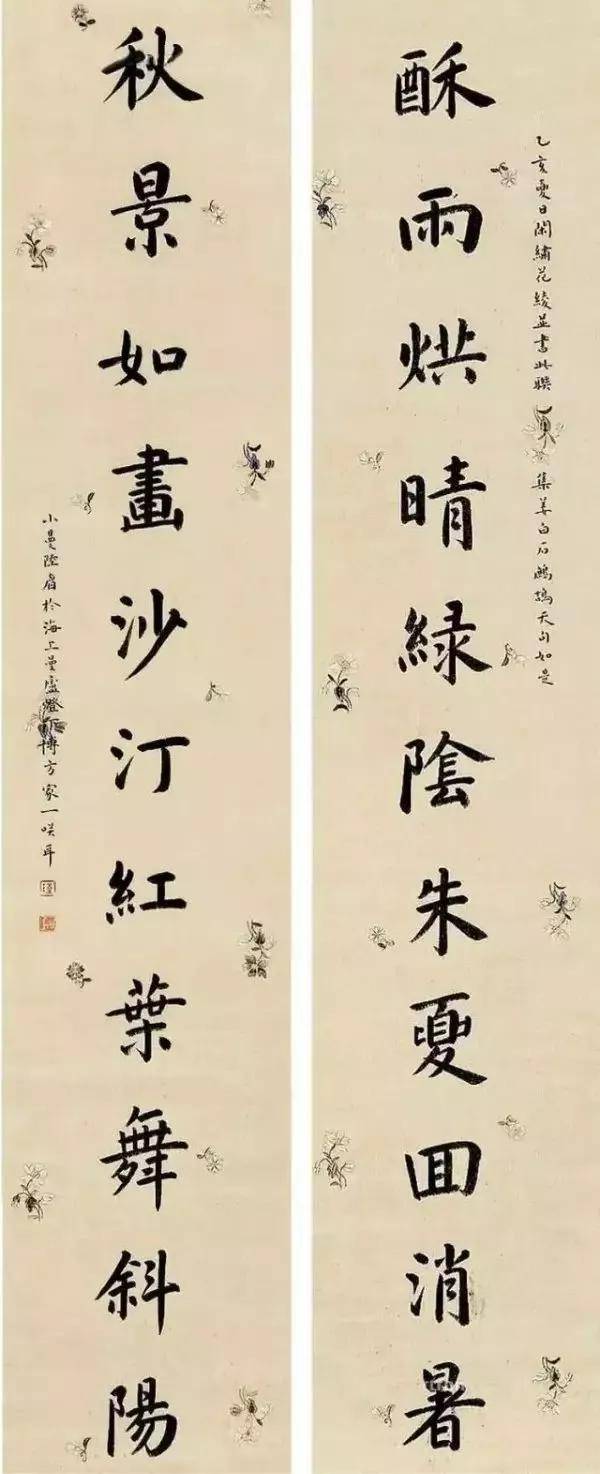 乙亥夏日閑繡花綾並書此聯 集姜白石鷓鴣天句如是
酥雨烘晴緑陰朱夏囬消暑
秋景如畫沙汀紅葉舞斜陽
小曼陸眉於海上曼盧燈下博方家一咲耳